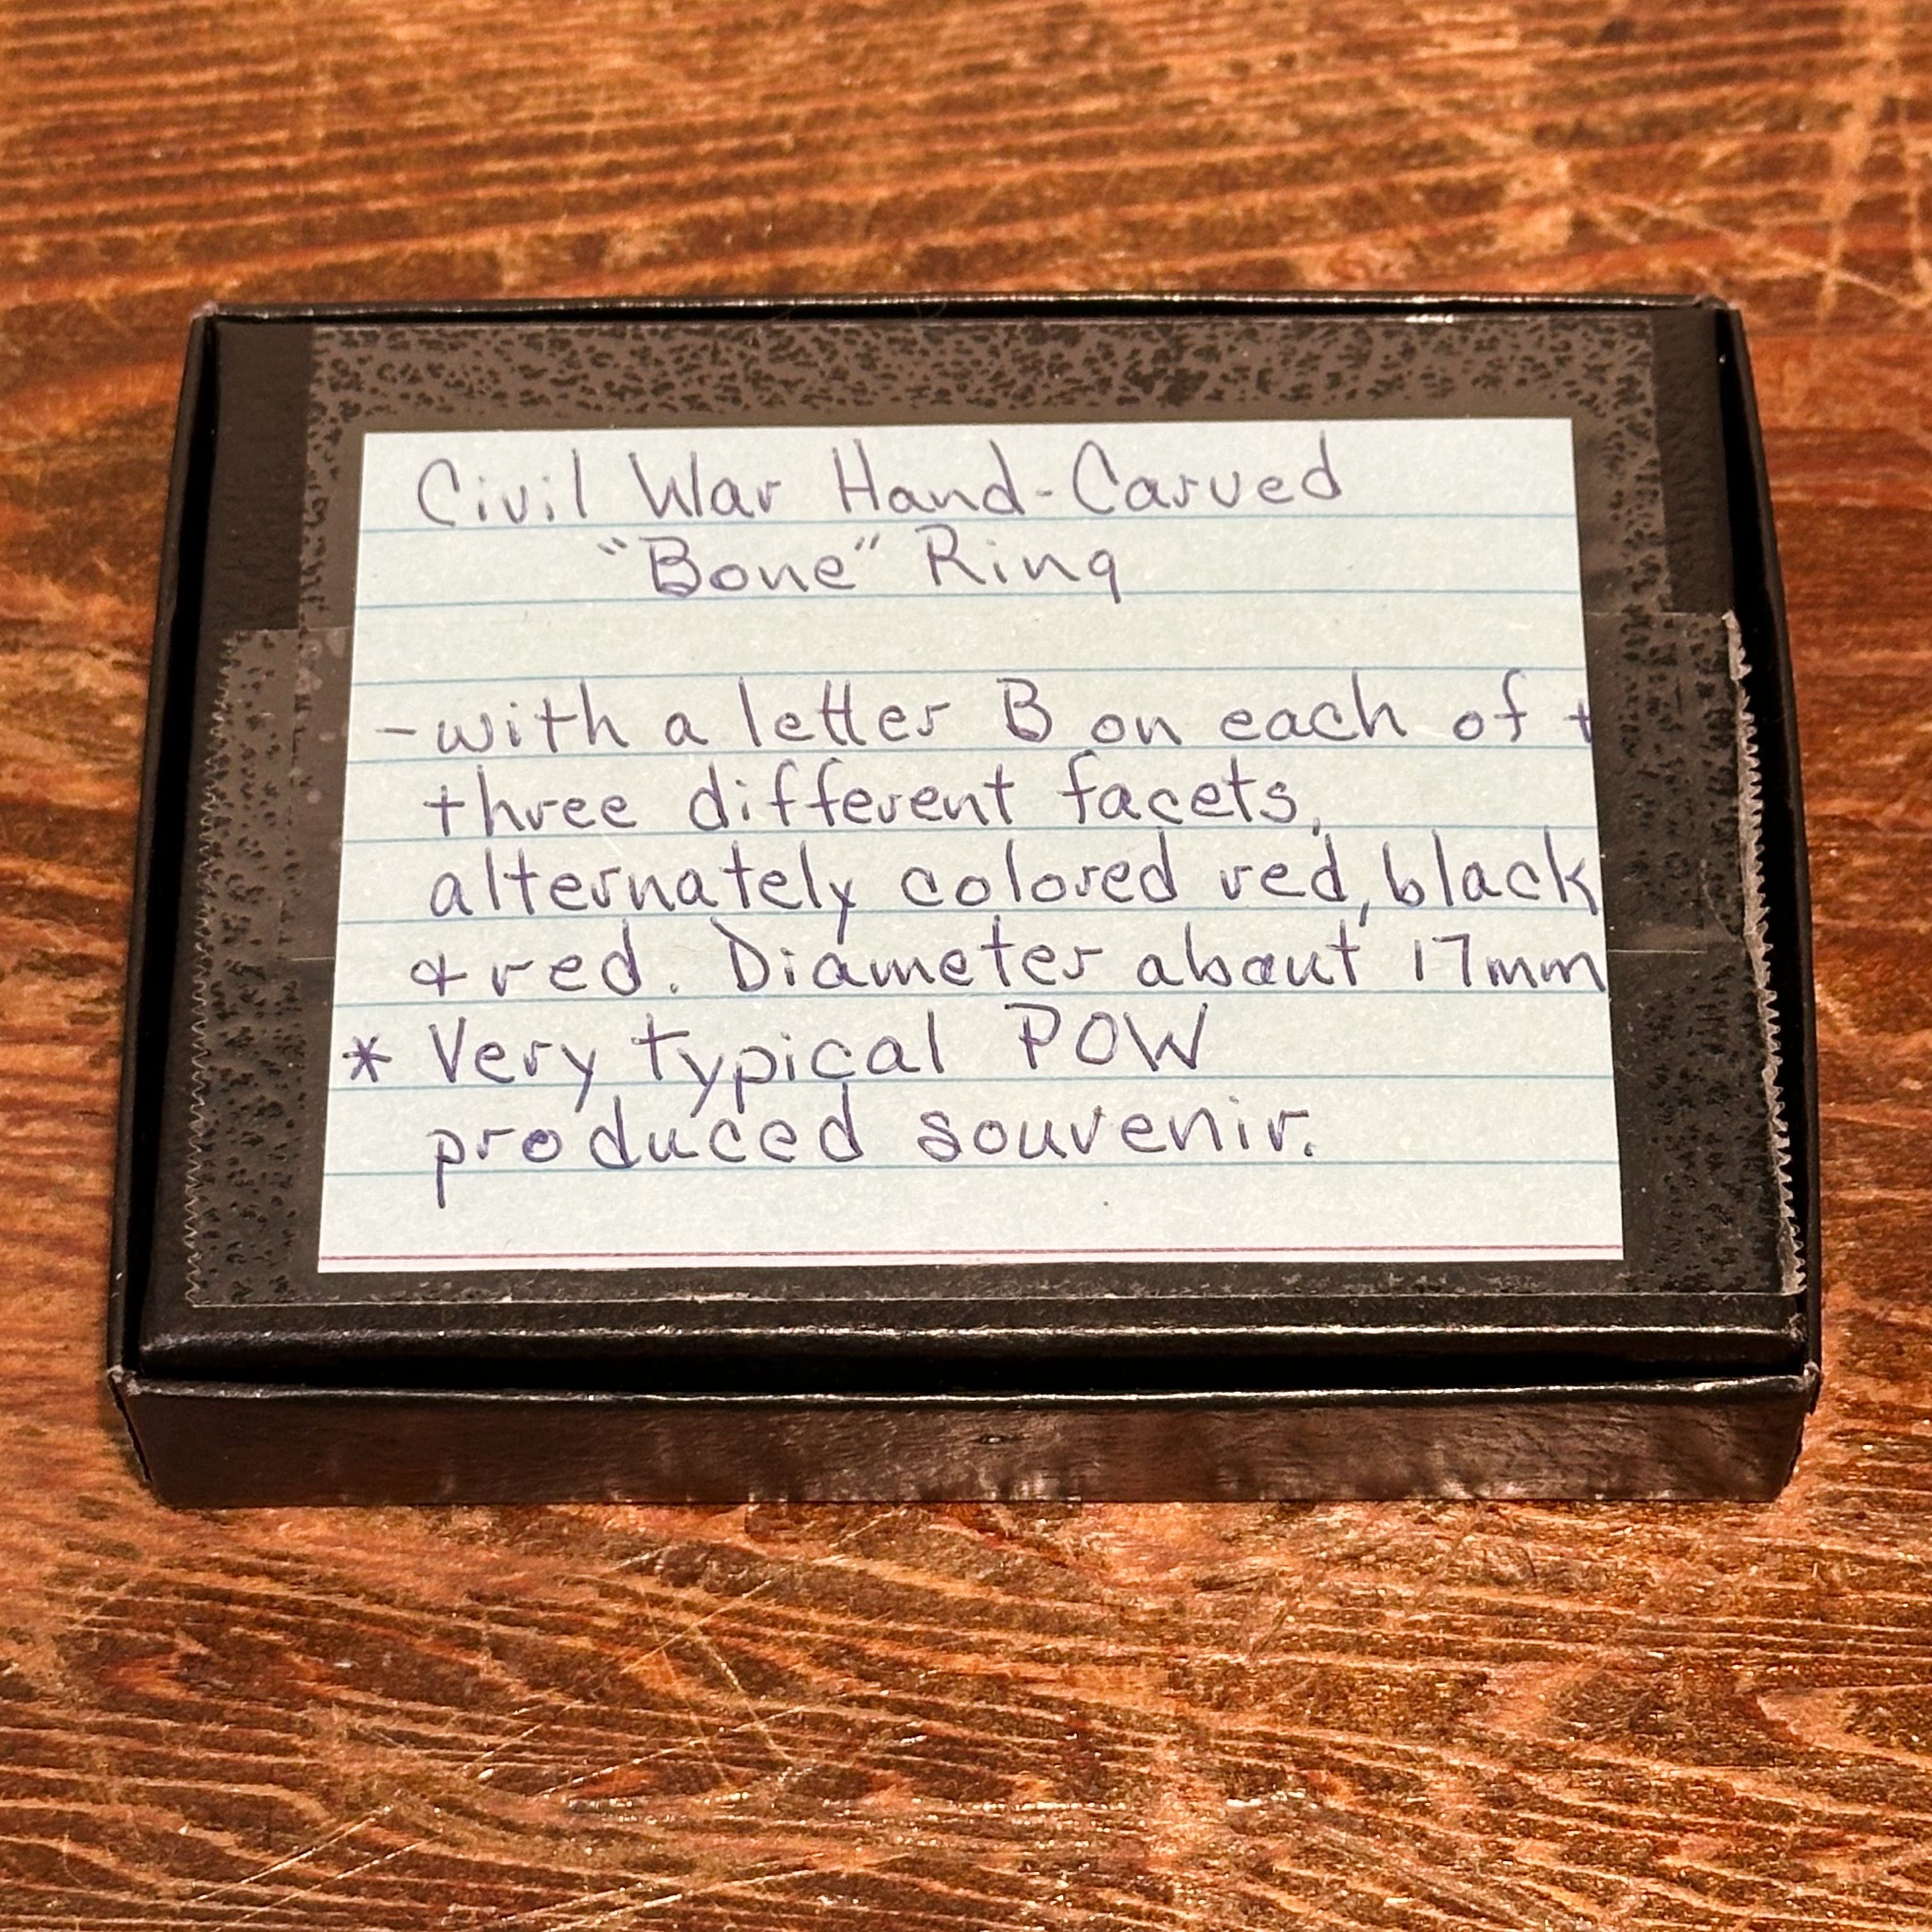 Civil War Hand-Carved
"Bone" Ring
- with a letter B on each of
three different facets,
alternately colored red, black
& red. Diameter about 17mm
* Very typical POW
produced souvenir.